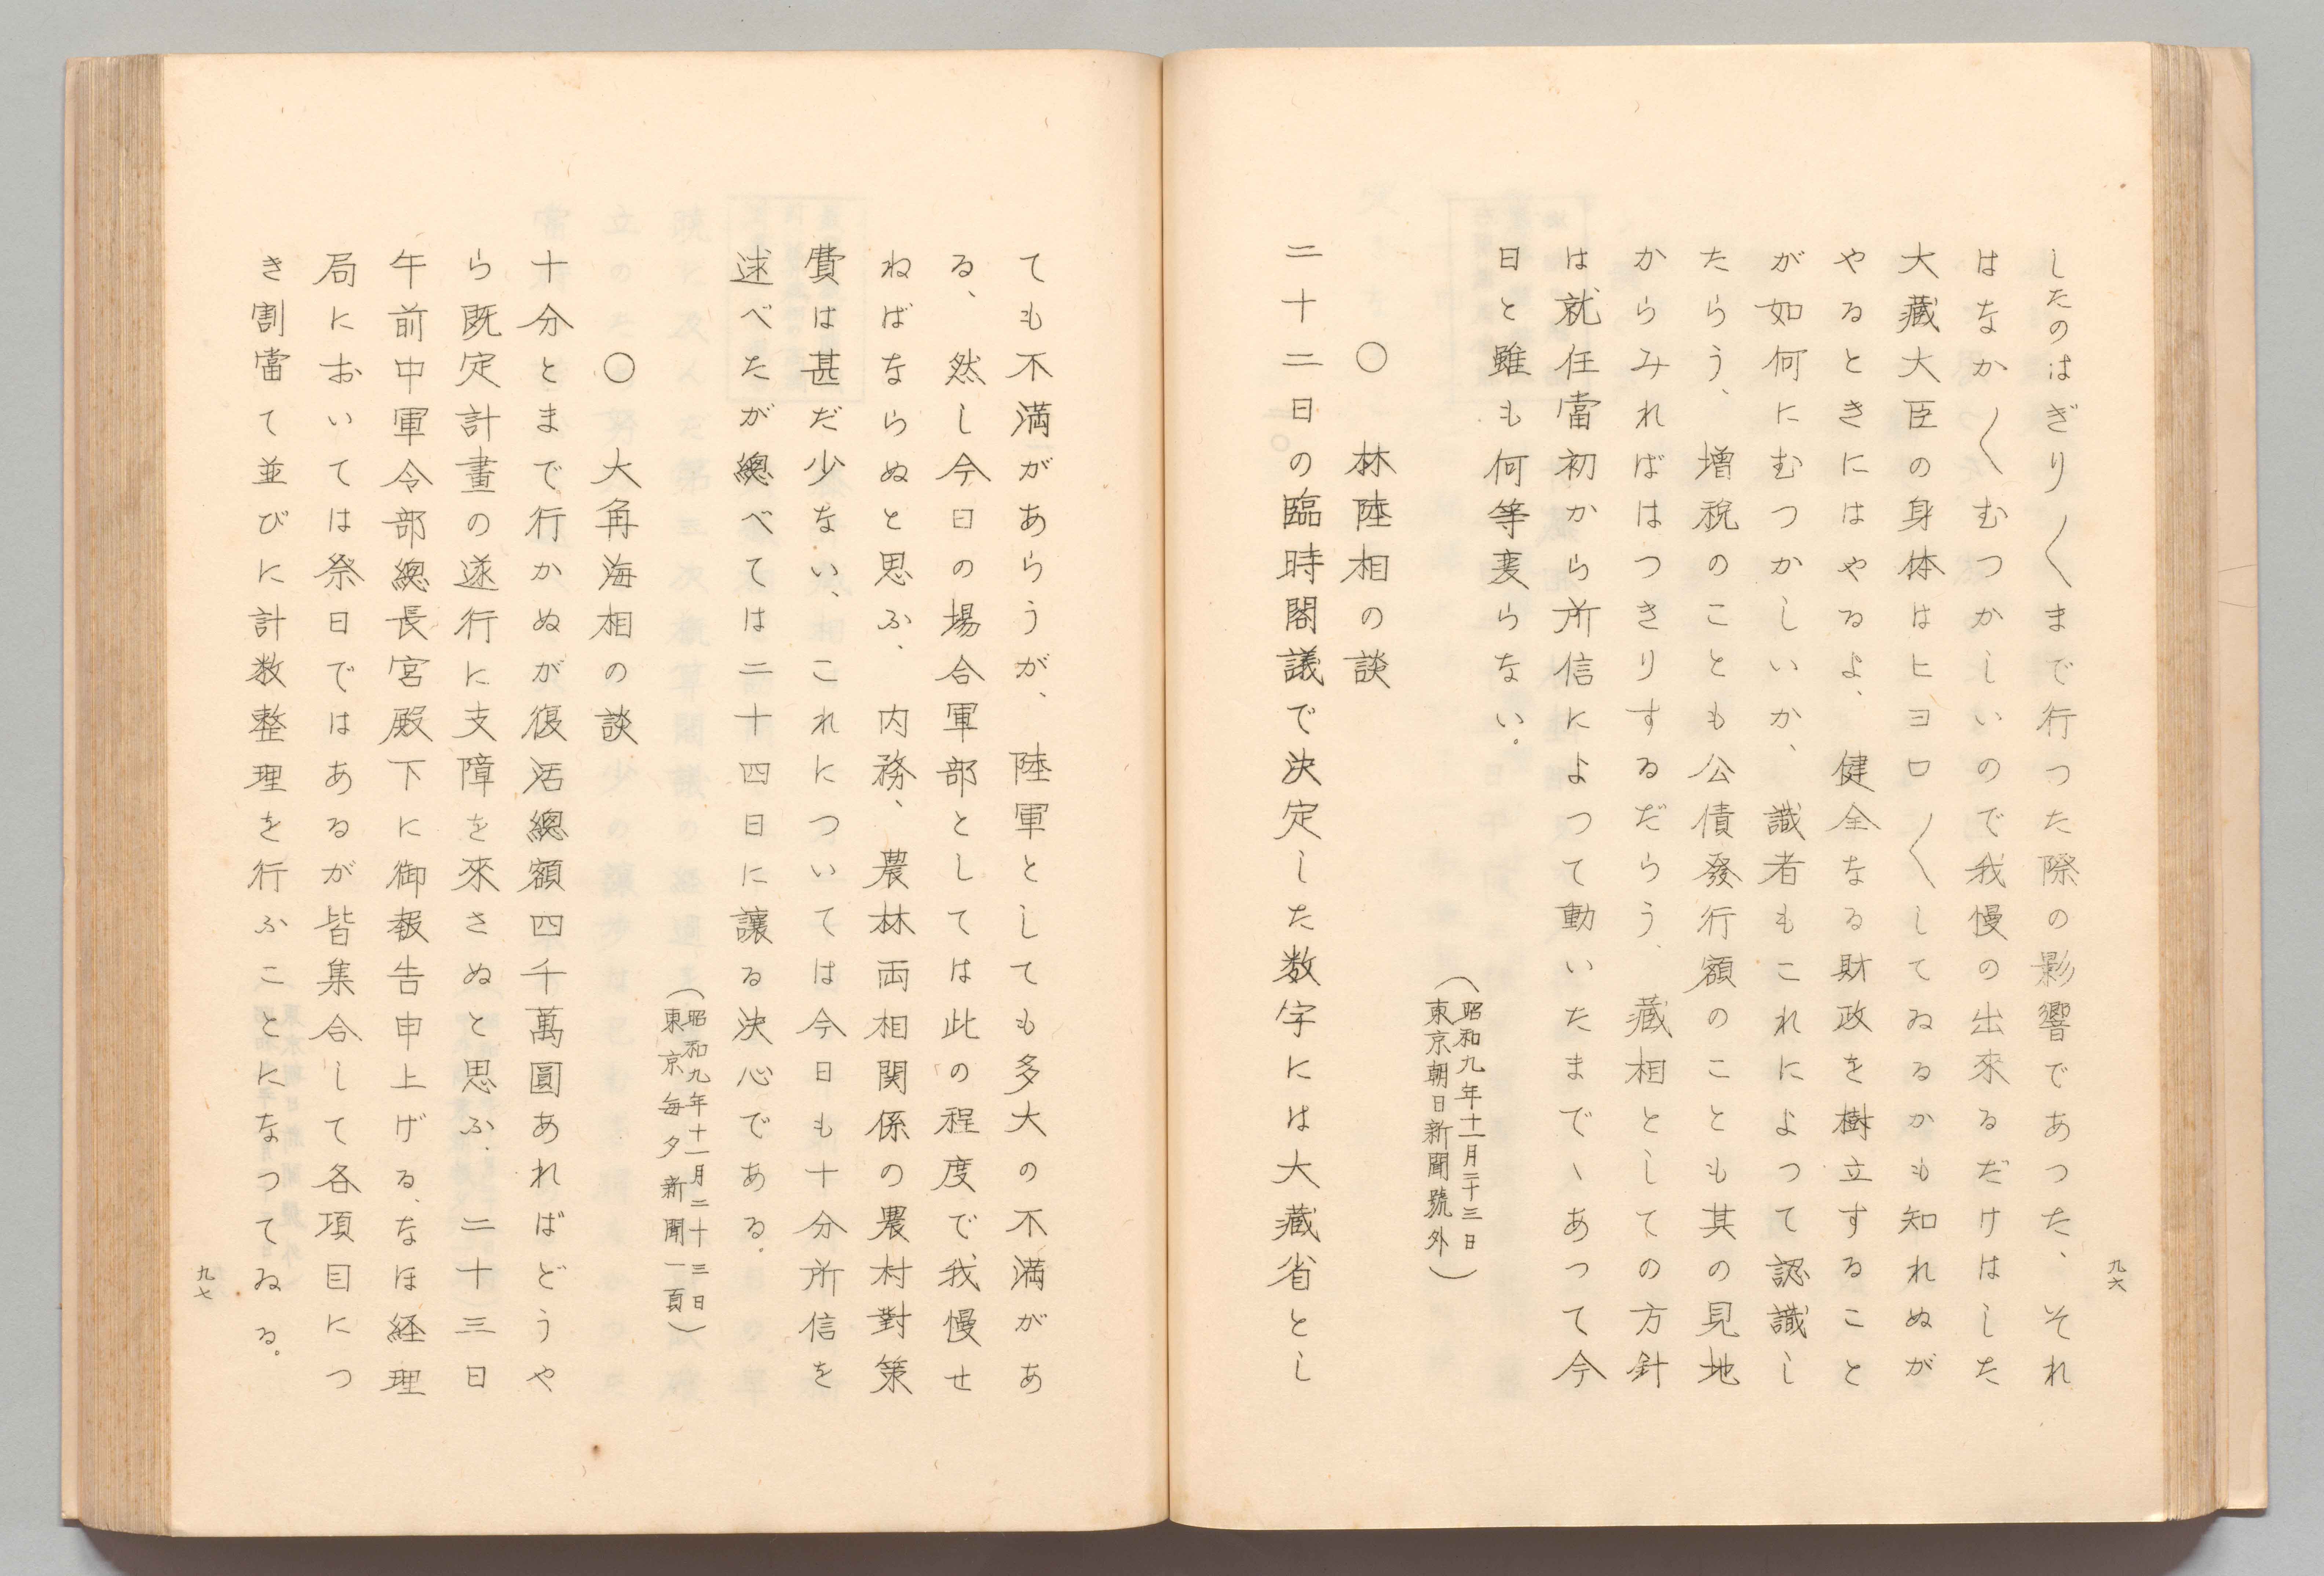 したのはぎり〱まで行つた際の影響であつた、それ
はなか〱むつかしいので我慢の出來るだけはした
大藏大臣の身体はヒヨロ〱してゐるかも知れぬが
やるときにはやるよ、健全なる財政を樹立すること
が如何にむつかしいか、識者もこれによつて認識し
たらう、増税のことも公債發行額のことも其の見地
からみればはつきりするだらう、藏相としての方針
は就任當初から所信によつて動いたまでゝあつて今
日と雖も何等変らない。
（昭和九年十一月二十三日
東京朝日新聞號外）
〇　林陸相の談
二十二日の臨時閣議で決定した数字には大藏省とし
九六
ても不満があらうが、陸軍としても多大の不満があ
る、然し今日の場合軍部としては此の程度で我慢せ
ねばならぬと思ふ、内務、農林両相関係の農村對策
費は甚だ少ない、これについては今日も十分所信を
述べたが總べては二十四日に讓る決心である。
（昭和九年十一月二十三日
東京毎夕新聞一頁）
〇　大角海相の談
十分とまで行かぬが復活總額四千萬圓あればどうや
ら既定計畫の遂行に支障を來さぬと思ふ、二十三日
午前中軍令部總長宮殿下に御報告申上げる、なほ経理
局においては祭日ではあるが皆集合して各項目につ
き割當て並びに計数整理を行ふことになつてゐる。
九七